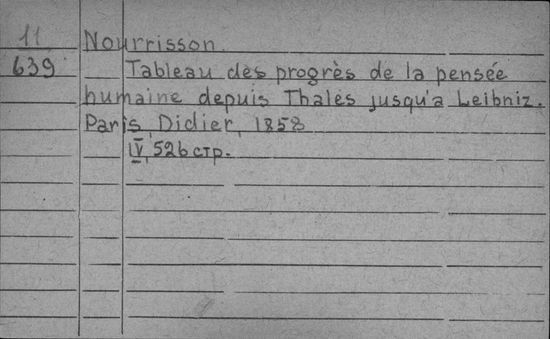 11 Nourrisson.
639 Tableau des progrès de la pensée
humaine depuis Thales jusqu'a Leibniz.
Paris, Didier, 1858
IV, 526 стр.